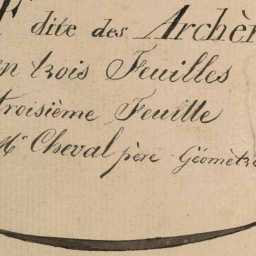 F dite des Archèr
en trois Feuilles
troisième Feuille
Mr Cheval père Géomètre